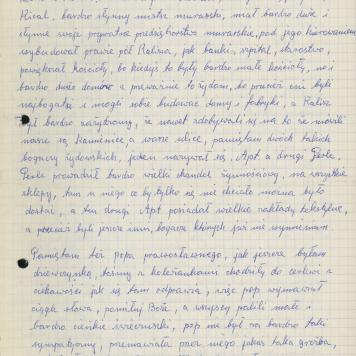 Pleszał. bardzo słynny mistrz murarski, miał bardzo duże i
słynne swoje prywatne przedsiębiorstwo murarskie, pod jego kierownictwem
wybudował prawie pół Kalisza, jak banki, szpital, starostwo,
powiększał kościoły, bo kiedyś to były bardzo małe kościoły, no i
bardzo dużo domów a przeważnie to żydom, bo przecież oni byli
najbogatsi i mogli sobie budować domy i fabryki, a Kalisz
był bardzo zażydzony, że nawet zdobywali się na to że mówili
nasze są kamienice a wasze ulice, pamiętam dwóch takich
bogaczy żydowskich, jeden nazywał się, Apt. a drugi Perle.
Perle prowadził bardzo wielki handel żywnościowy, na wszystkie
sklepy, tam u niego co by tylko się nie chciało można było
dostać, a ten drugi Apt posiadał wielkie zakłady tekstylne,
a przecież byli jeszcze inni, bogacze których już nie wymieniam
Pamiętam też popa prawosławnego, jak jeszcze byłam
dziewczynką, bośmy z koleżankami chodziły do cerkwi z
ciekawości jak się tam odprawia, więc pop wymawiał
ciągle słowa, pamiłuj Boże, a wszyscy palili małe i
bardzo cienkie świeczniki, pop nie był na bardzo taki
sympatyczny, przemawiała przez niego jakaś taka groźba,